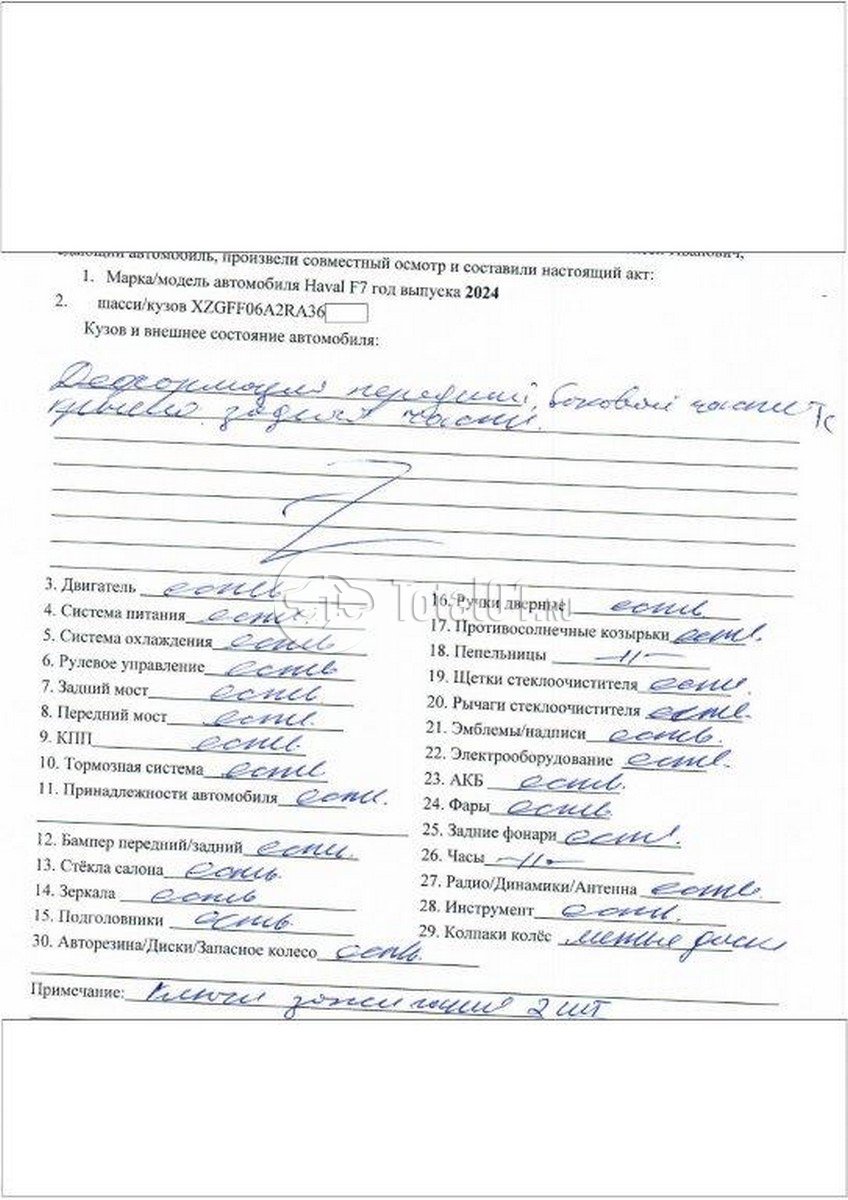 дающий автомобиль, произвели совместный осмотр и составили настоящий акт:
1. Марка/модель автомобиля Haval F7 год выпуска 2024
2. шасси/кузов XZGFF06A2RA36
Кузов и внешнее состояние автомобиля:
Деформация передний, боковой части ТС
крыша. задняя части.
Z
3. Двигатель есть
4. Система питания есть.
5. Система охлаждения есть
6. Рулевое управление есть
7. Задний мост есть.
8. Передний мост есть
9. КПП есть.
10. Тормозная система есть
11. Принадлежности автомобиля есть.
12. Бампер передний/задний есть.
13. Стёкла салона есть
14. Зеркала есть
15. Подголовники есть.
30. Авторезина/Диски/Запасное колесо есть.
16. Ручки дверные есть
17. Противосолнечные козырьки есть.
18. Пепельницы -//-
19. Щетки стеклоочистителя есть.
20. Рычаги стеклоочистителя есть.
21. Эмблемы/надписи есть.
22. Электрооборудование есть.
23. АКБ есть.
24. Фары есть
25. Задние фонари есть.
26. Часы -//-
27. Радио/Динамики/Антенна есть
28. Инструмент есть.
29. Колпаки колёс диски
Примечание: Ключи зажигания 2 шт
Total01.ru